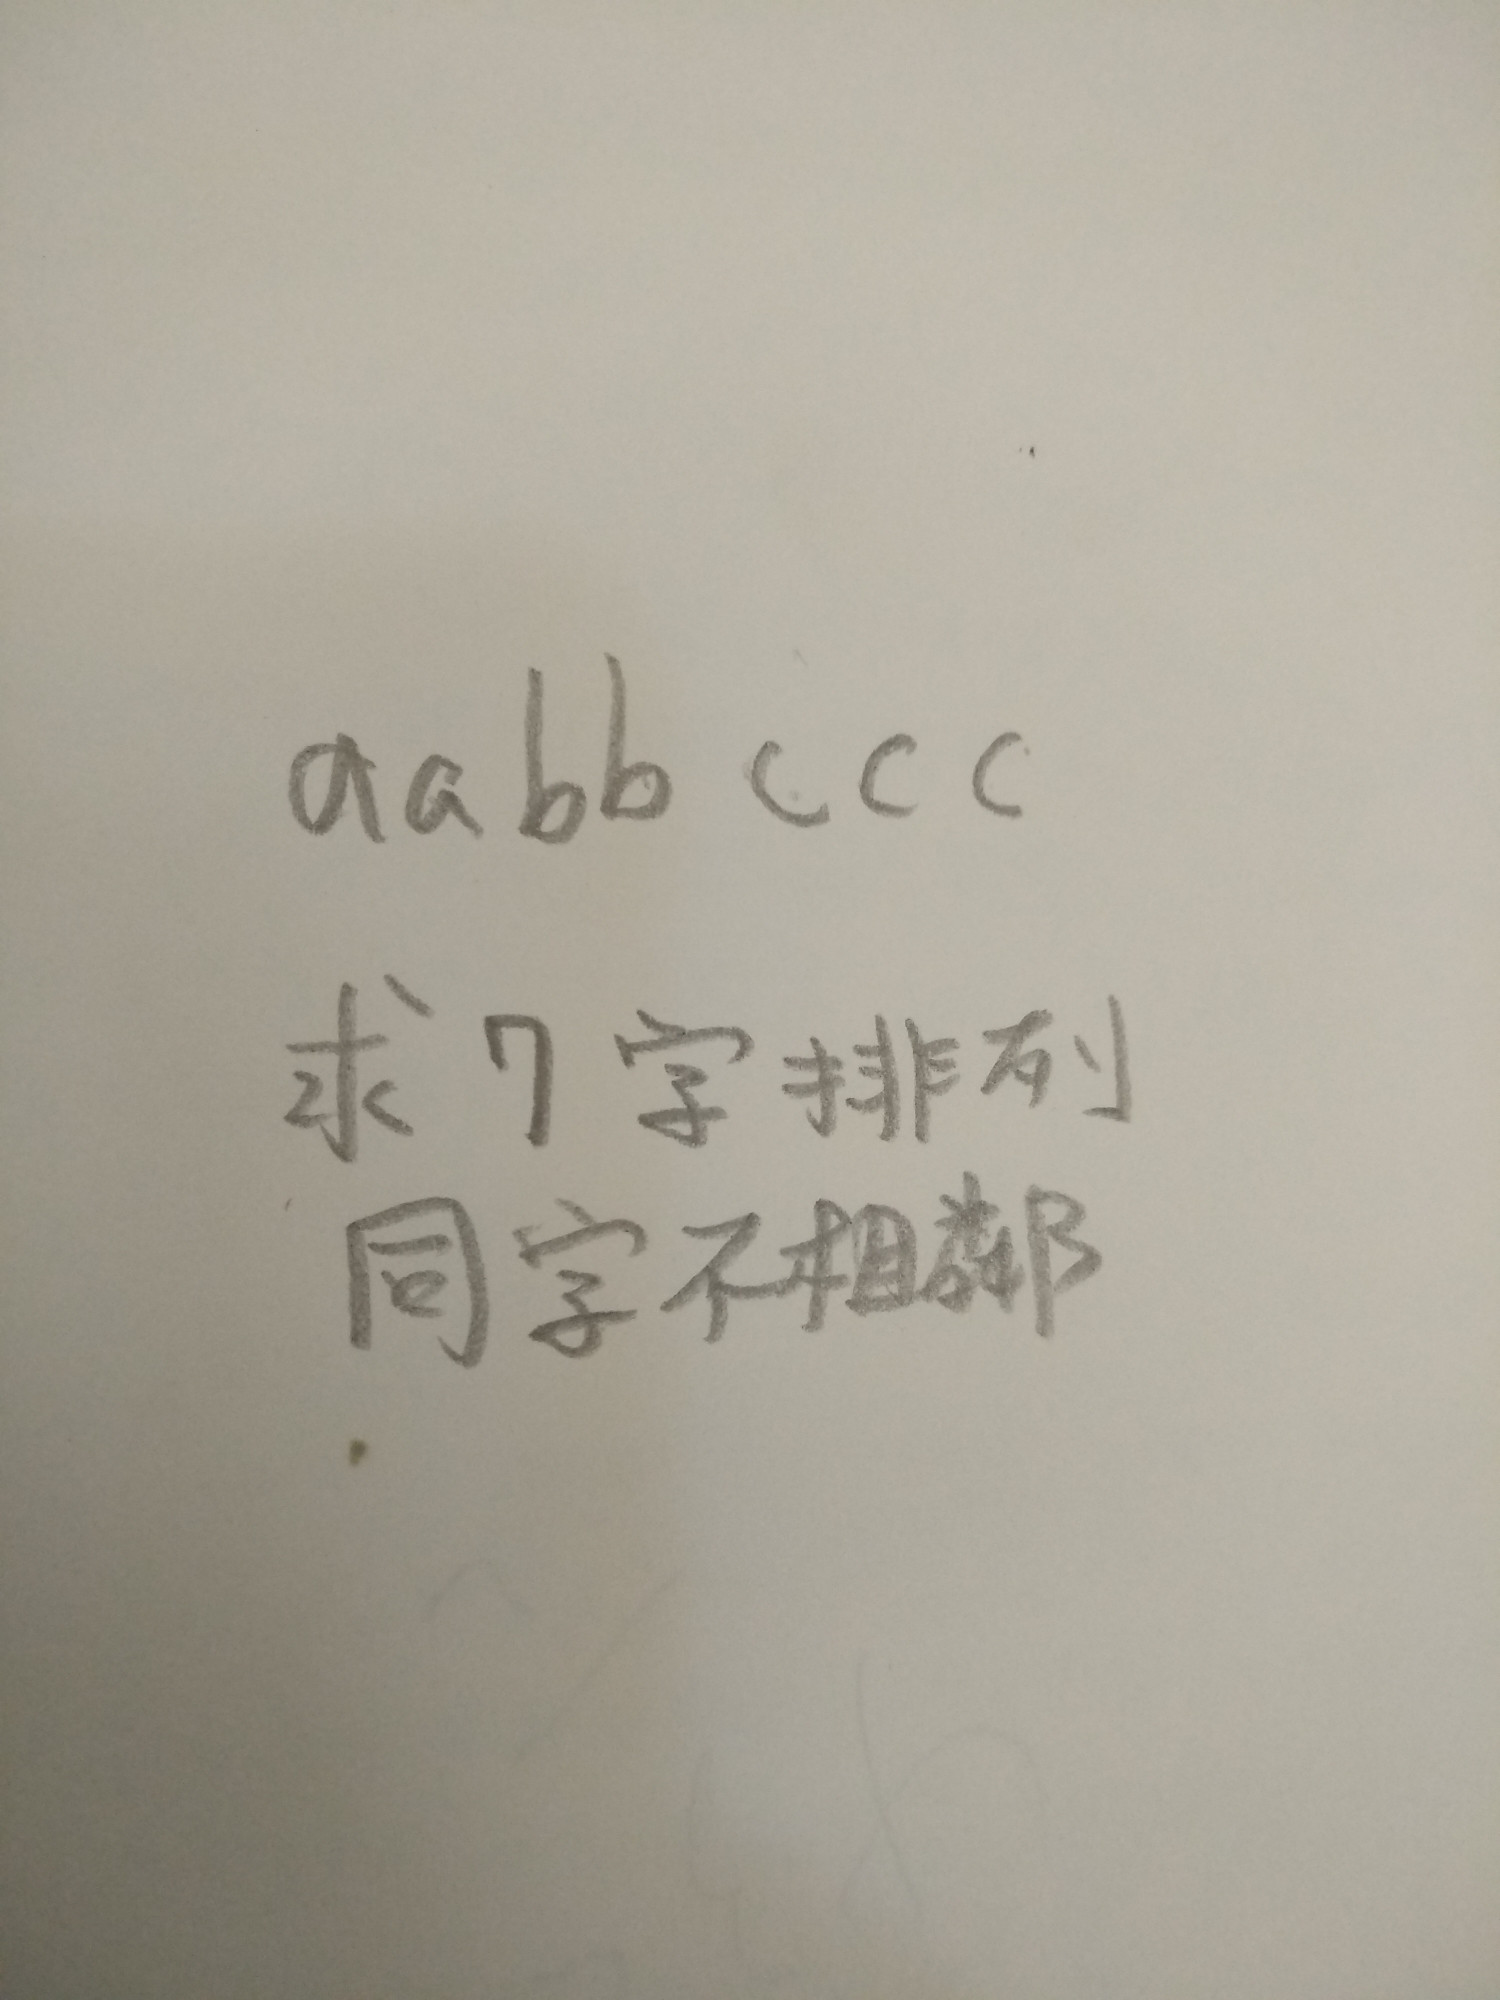 aabbccc
求7字排列
同字不相鄰